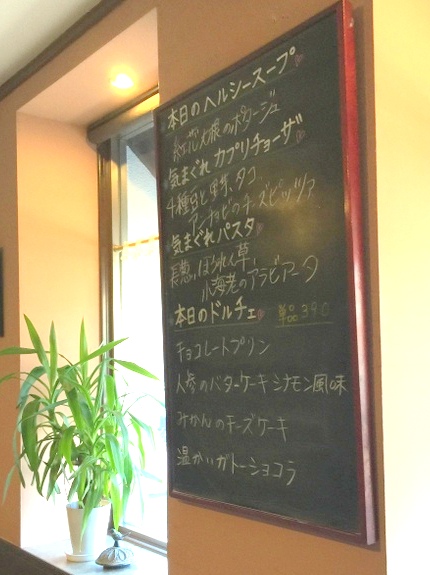 本日のヘルシースープ
紅花大根のポタージュ
気まぐれ カプリチョーザ
4種豆と野菜、タコ、
アンチョビのチーズピッツァ
気まぐれパスタ
長葱、ほうれん草、
小海老のアラビアータ
本日のドルチェ 単品390
チョコレートプリン
人参のバターケーキ シナモン風味
みかんのチーズケーキ
温かいガトーショコラ